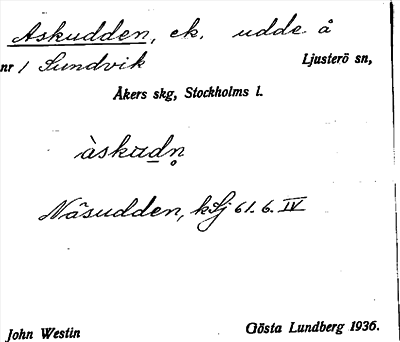 Askudden, ek. udde å
nr 1 Sundvik Ljusterö sn,
Åkers skg, Stockholms l.
àskudn̥
Näsudden, kSj 61.6.IV
John Westin Gösta Lundberg 1936.